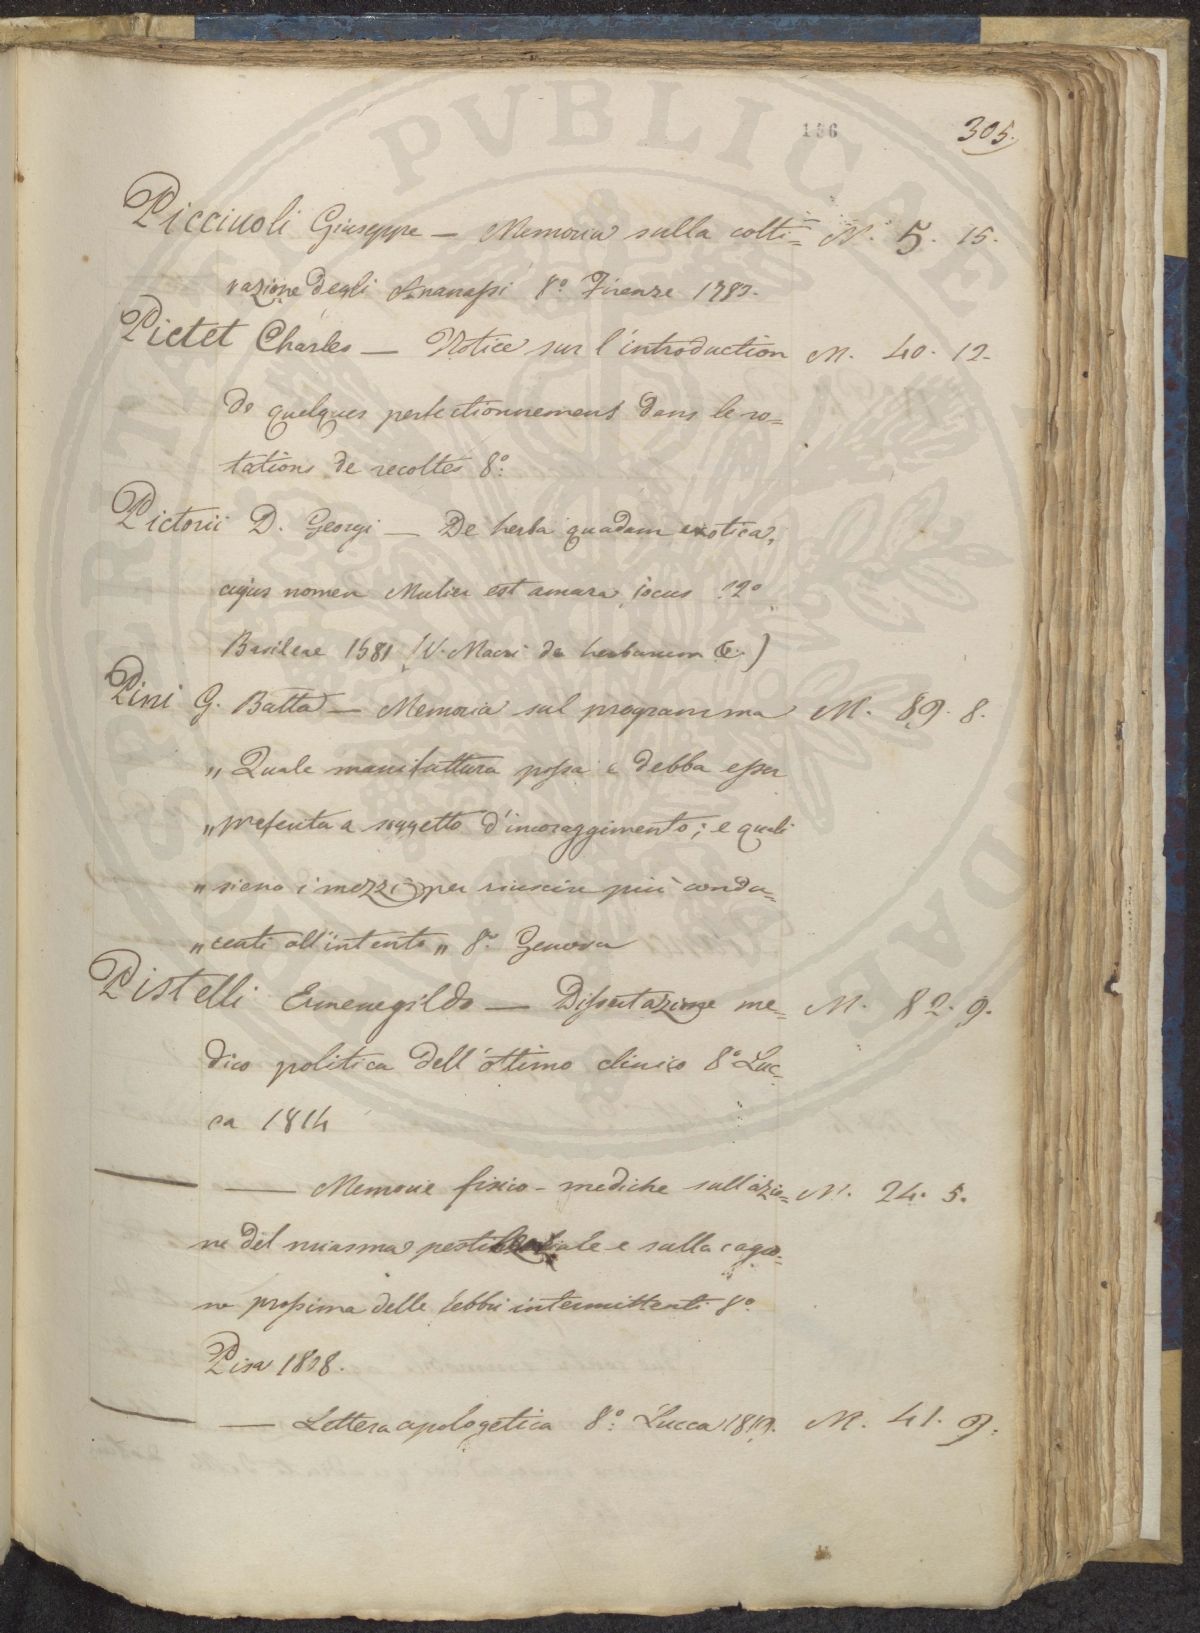 156
305.
Piccivoli Giuseppe — Memoria sulla colti= M. 5. 15.
vazione degli Ananassi 8.º Firenze 178
Pictet Charles — Notice sur l'introduction M. 40. 12.
de quelques perfectionnemens dans le ro=
tations de recoltes 8.º
Pictorii D. Georgi — De herba quadam exotica,
cujus nomen Mulier est amara, jocus 12º
Basileae 1581 (V. Macri de herbarum &.)
Pini G. Batta — Memoria sul programma M. 89. 8.
„ Quale manifattura possa e debba esser
„ prescelta a soggetto d'incoraggimento; e quali
„ sieno i mezzi per riuscire più condu=
„ centi all'intento „ 8.º Genova
Pistelli Ermenegildo — Dissertazione me= M. 82. 9.
dico politica dell'ottimo clinico 8º Luc=
ca 1814
— Memorie fisico-mediche sull'azio= M. 24. 5.
ne del miasma e sulla cagio=
ne prossima delle febbri intermittenti 8º
Pisa 18 8.
— Lettera apologetica 8.º Lucca M. 41. 9.
PVBLICAE